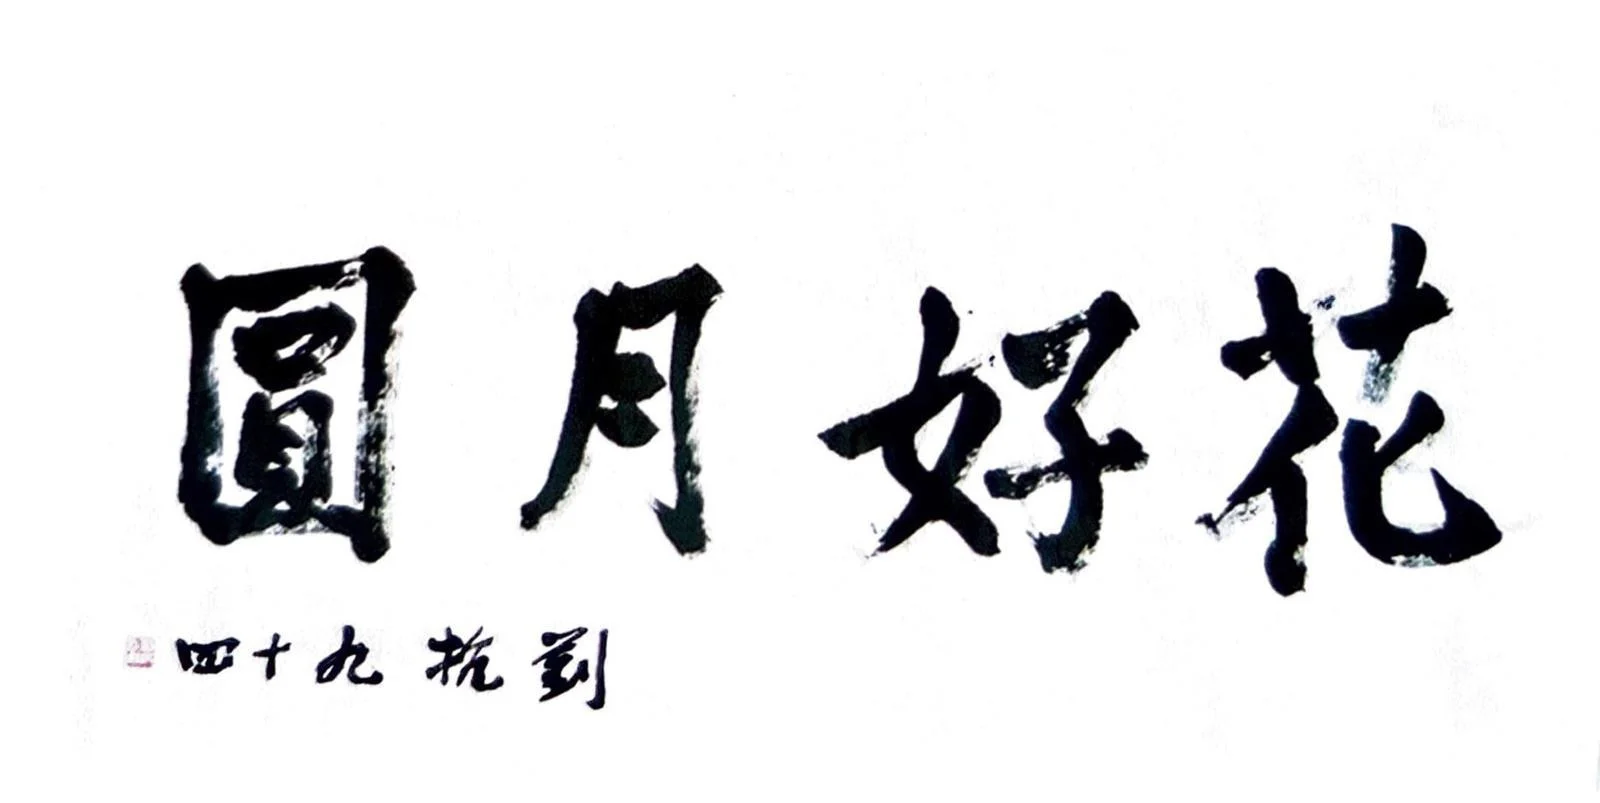 花好月圓
劉抗九十四